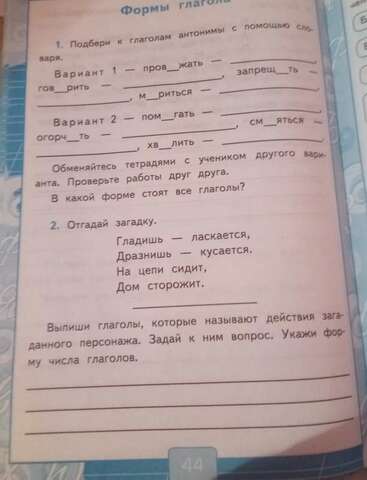 Формы глагола
1. Подбери к глаголам антонимы с помощью сло-
варя.
Вариант 1 — пров__жать — ________,
гов__рить — ________, запрещ__ть —
________, м__риться — ________.
Вариант 2 — пом__гать — ________,
огорч__ть — ________, см__яться —
________, хв__лить — ________.
Обменяйтесь тетрадями с учеником другого вари-
анта. Проверьте работы друг друга.
В какой форме стоят все глаголы?
2. Отгадай загадку.
Гладишь — ласкается,
Дразнишь — кусается.
На цепи сидит,
Дом сторожит.
Выпиши глаголы, которые называют действия зага-
данного персонажа. Задай к ним вопрос. Укажи фор-
му числа глаголов.
44